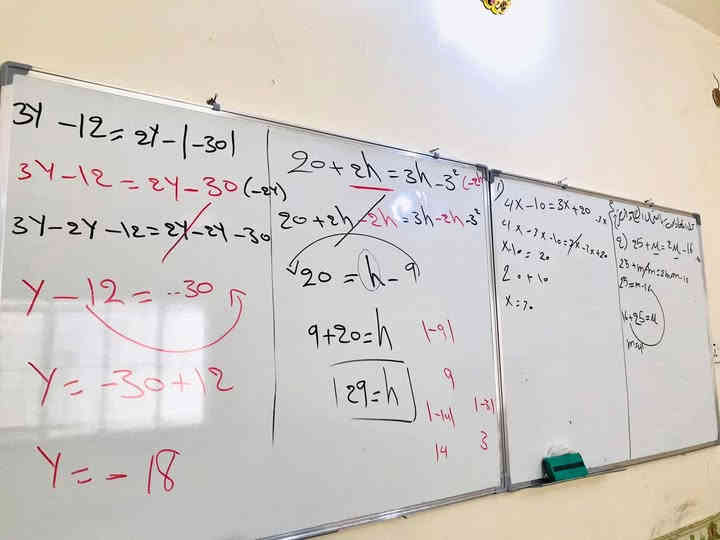 3Y - 12 = 2Y - |-30|
3Y - 12 = 2Y - 30 (-2Y)
3Y - 2Y - 12 = 2Y - 2Y - 30
Y - 12 = -30
Y = -30 + 12
Y = - 18
20 + 2h = 3h - 3² (-2h)
20 + 2h - 2h = 3h - 2h - 3²
20 = h - 9
9 + 20 = h
29 = h
|-9|
9
|-14| |-3|
14 3
1)
4x - 10 = 3x + 20 - 3x
4x - 3x - 10 = 3x - 3x + 20
x - 10 = 20
20 + 10
2) 25 + m = 2m - 16
25 = m - 16
16 + 25 = m